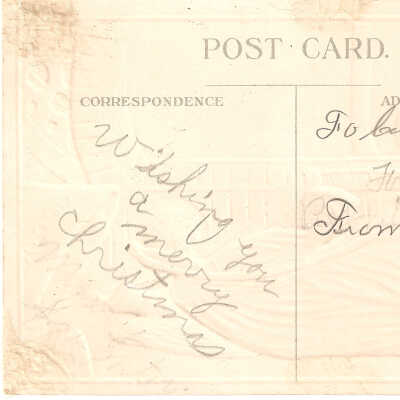 POST CARD.
CORRESPONDENCE
AD
Wishing you
a
merry
Christmas
To
From